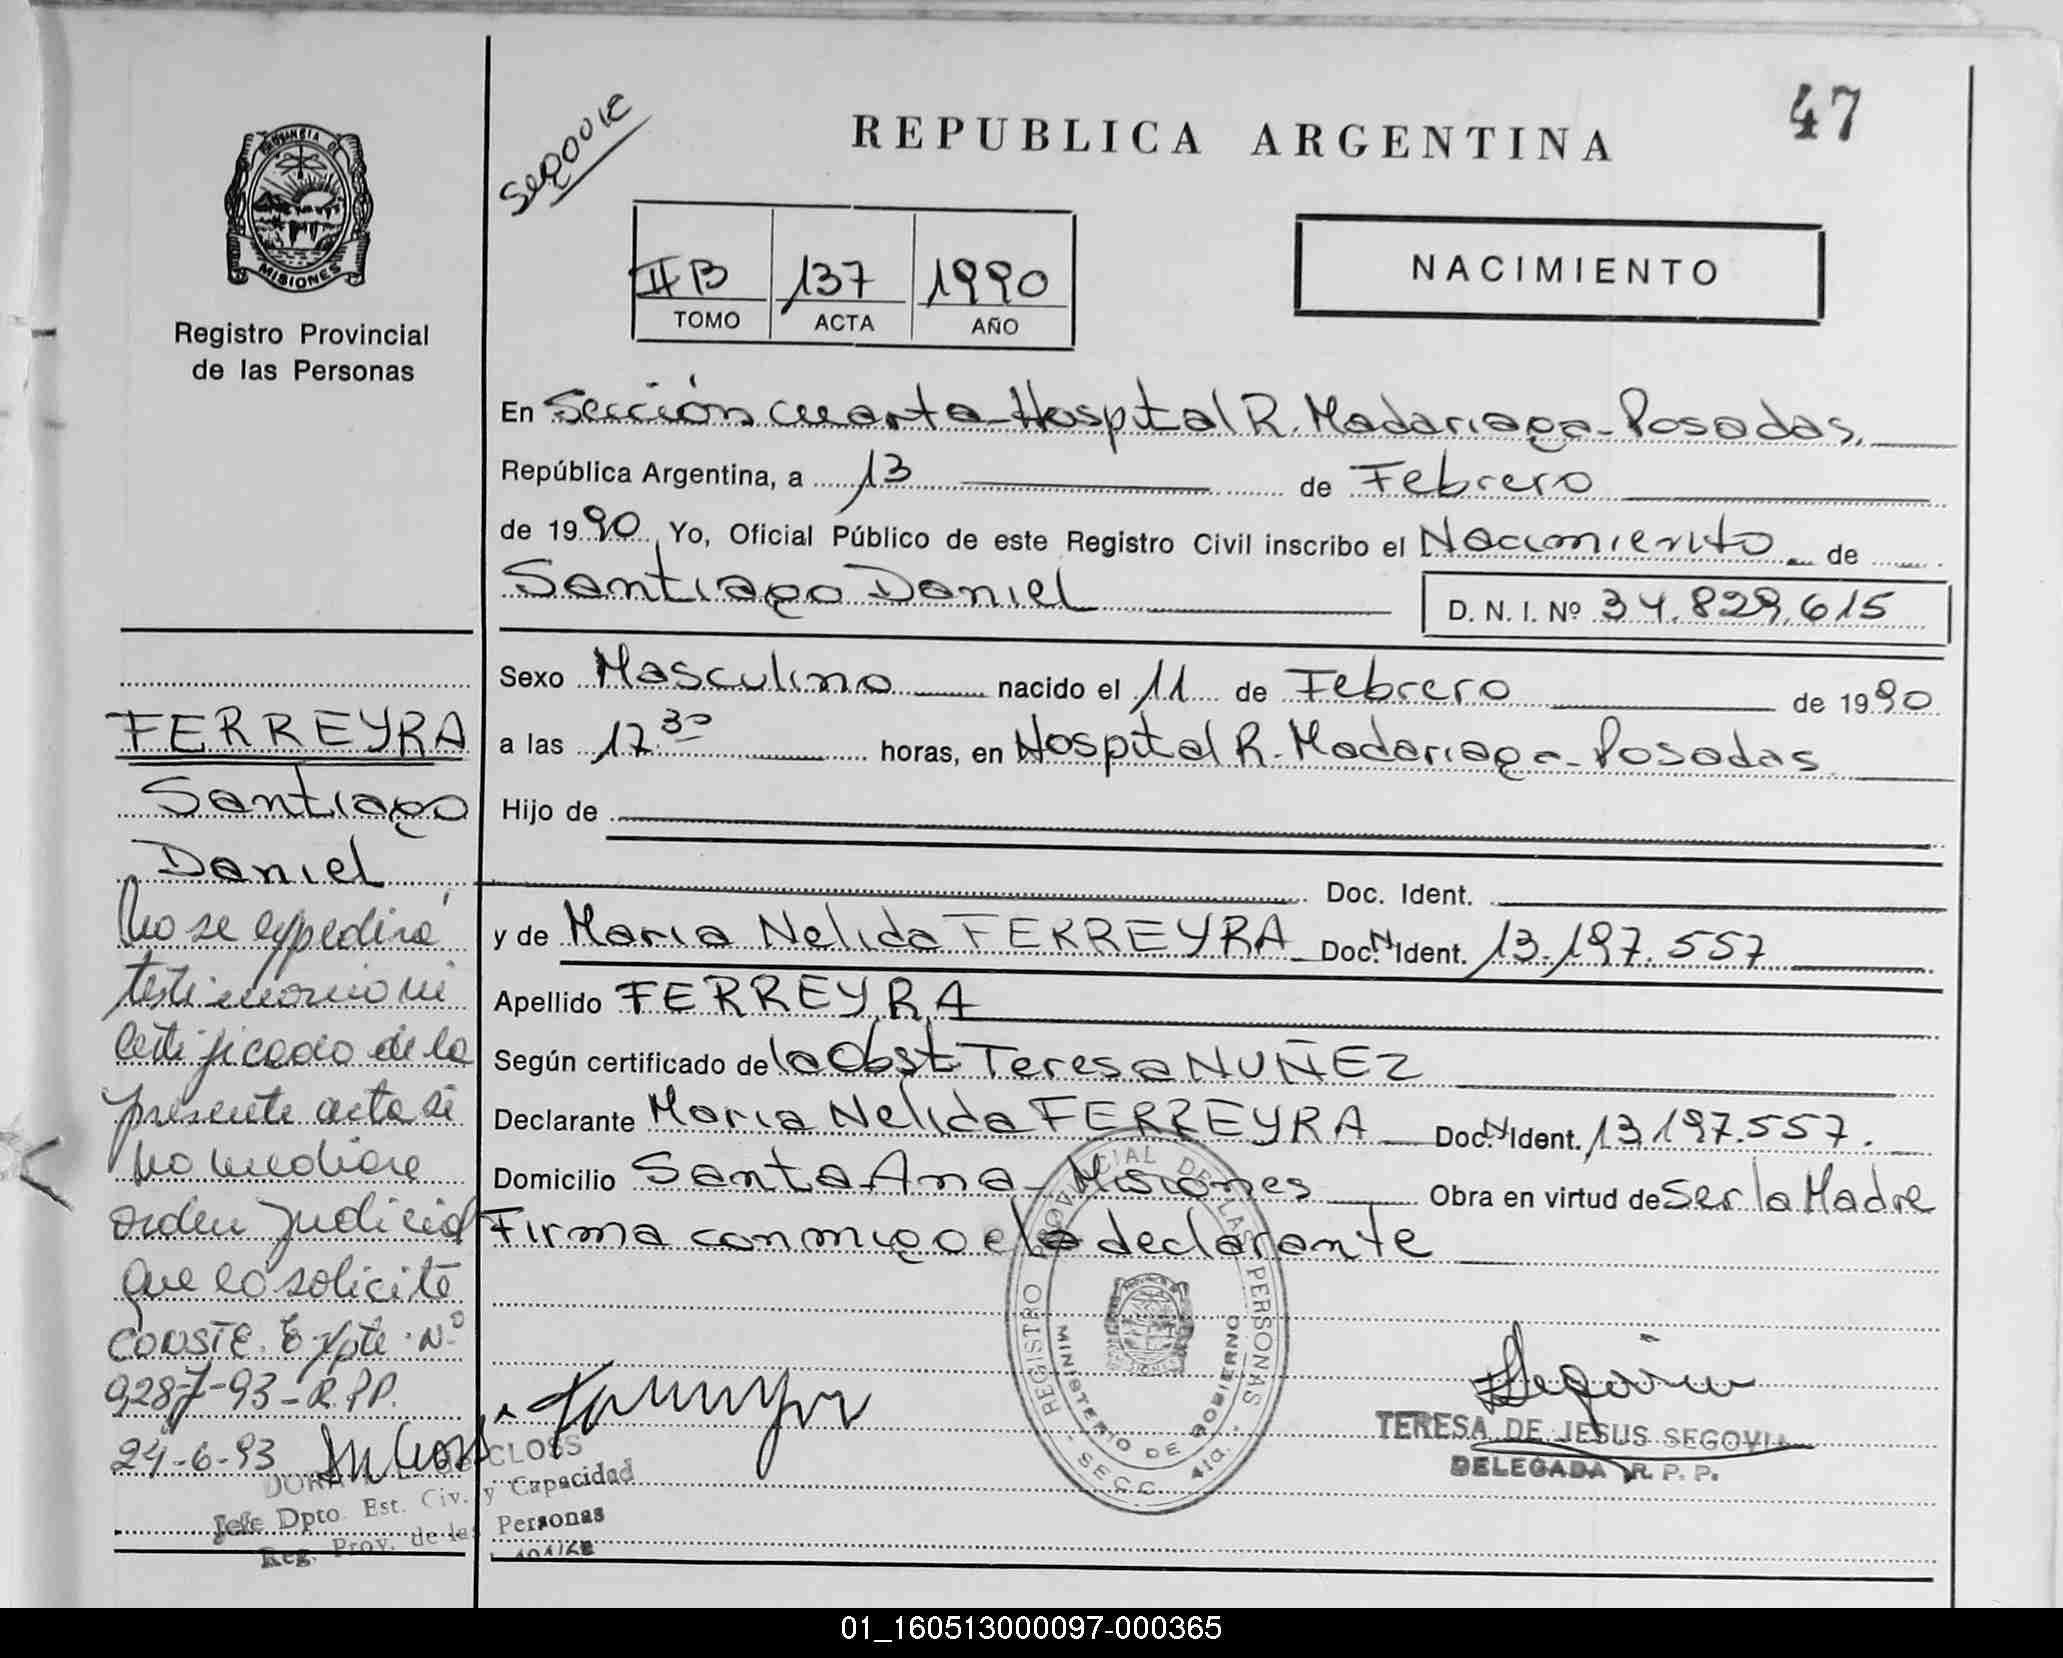 47
REPUBLICA ARGENTINA
PROVINCIA DE
MISIONES
Registro Provincial
de las Personas
II B 137 1990
TOMO ACTA AÑO
NACIMIENTO
En Sección cuarta - Hospital R. Madariaga - Posadas,
República Argentina, a 13 de Febrero
de 1990 Yo, Oficial Público de este Registro Civil inscribo el Nacimiento de
Santiago Daniel D. N. I. Nº 34.829.615
Sexo Masculino nacido el 11 de Febrero de 1990
a las 17 30 horas, en Hospital R. Madariaga - Posadas
Hijo de
Doc. Ident.
y de Maria Nelida FERREYRA Doc. N Ident. 13.197.557
Apellido FERREYRA
Según certificado de la Obst. Teresa NUÑEZ
Declarante Maria Nelida FERREYRA Doc. N Ident. 13197.557.
Domicilio Santa Ana - Misiones Obra en virtud de Ser la Madre
Firma conmigo el declarante
FERREYRA
Santiago
Daniel
No se expedirá
testimonio ni
certificado de la
presente acta si
no mediare
orden judicial
que lo solicite
CONSTE. Expte. Nº
9287-93-R.P.P.
24-6-93
CLOSS
Jefe Dpto. Est. Civ. y Capacidad
Reg. Prov. de las Personas
REGISTRO PROVINCIAL DE LAS PERSONAS
MINISTERIO DE GOBIERNO
- SECC. 4ta. -
TERESA DE JESUS SEGOVIA
DELEGADA R. P. P.
01_160513000097-000365